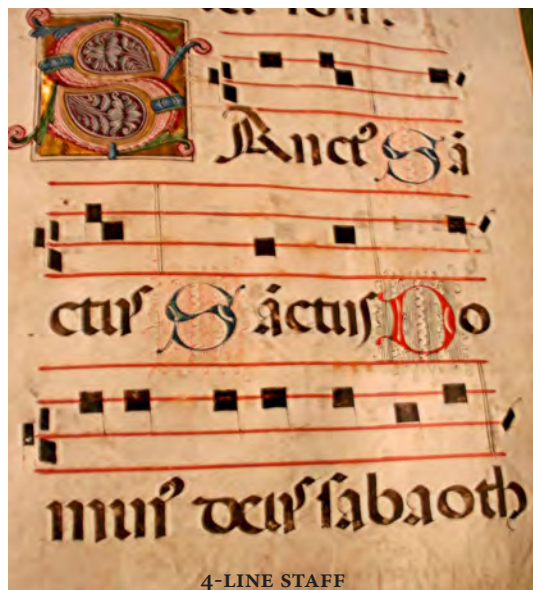 SAnctꝰ Sā
ctus Sāctus Do
minus deus sabaoth
4-LINE STAFF